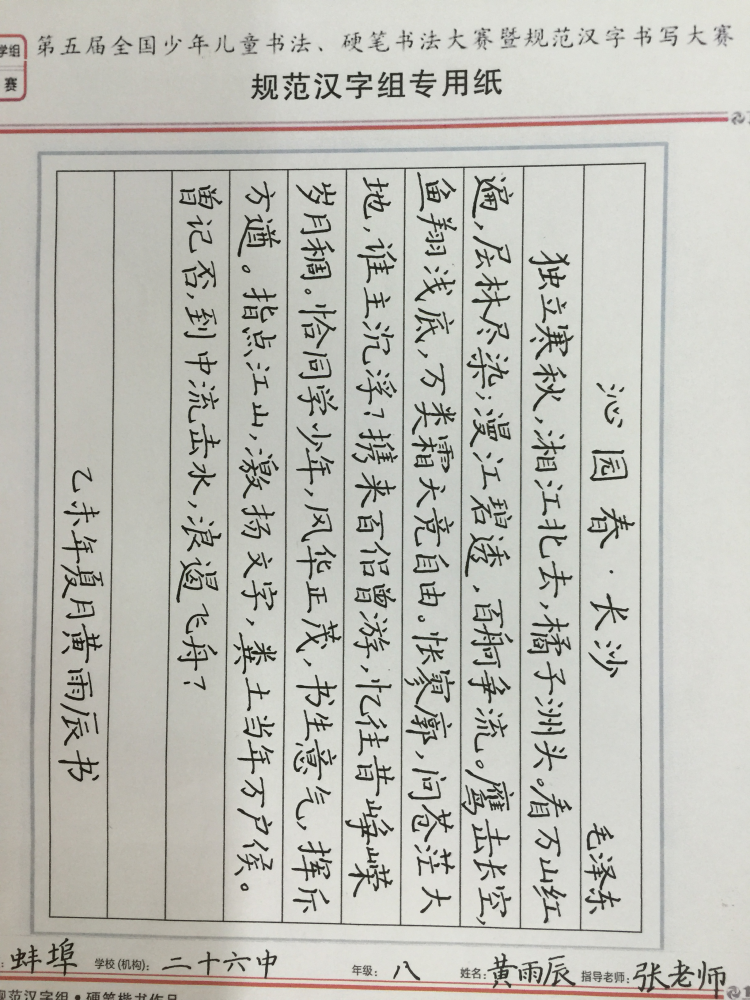 学组
赛
第五届全国少年儿童书法、硬笔书法大赛暨规范汉字书写大赛
规范汉字组专用纸
沁园春·长沙 毛泽东
独立寒秋,湘江北去,橘子洲头。看万山红
遍,层林尽染;漫江碧透,百舸争流。鹰击长空,
鱼翔浅底,万类霜天竞自由。怅寥廓,问苍茫大
地,谁主沉浮?携来百侣曾游,忆往昔峥嵘
岁月稠。恰同学少年,风华正茂,书生意气,挥斥
方遒。指点江山,激扬文字,粪土当年万户侯。
曾记否,到中流击水,浪遏飞舟?
乙未年夏月黄雨辰书
:蚌埠 学校(机构):二十六中 年级:八 姓名:黄雨辰 指导老师:张老师
规范汉字组·硬笔楷书作品